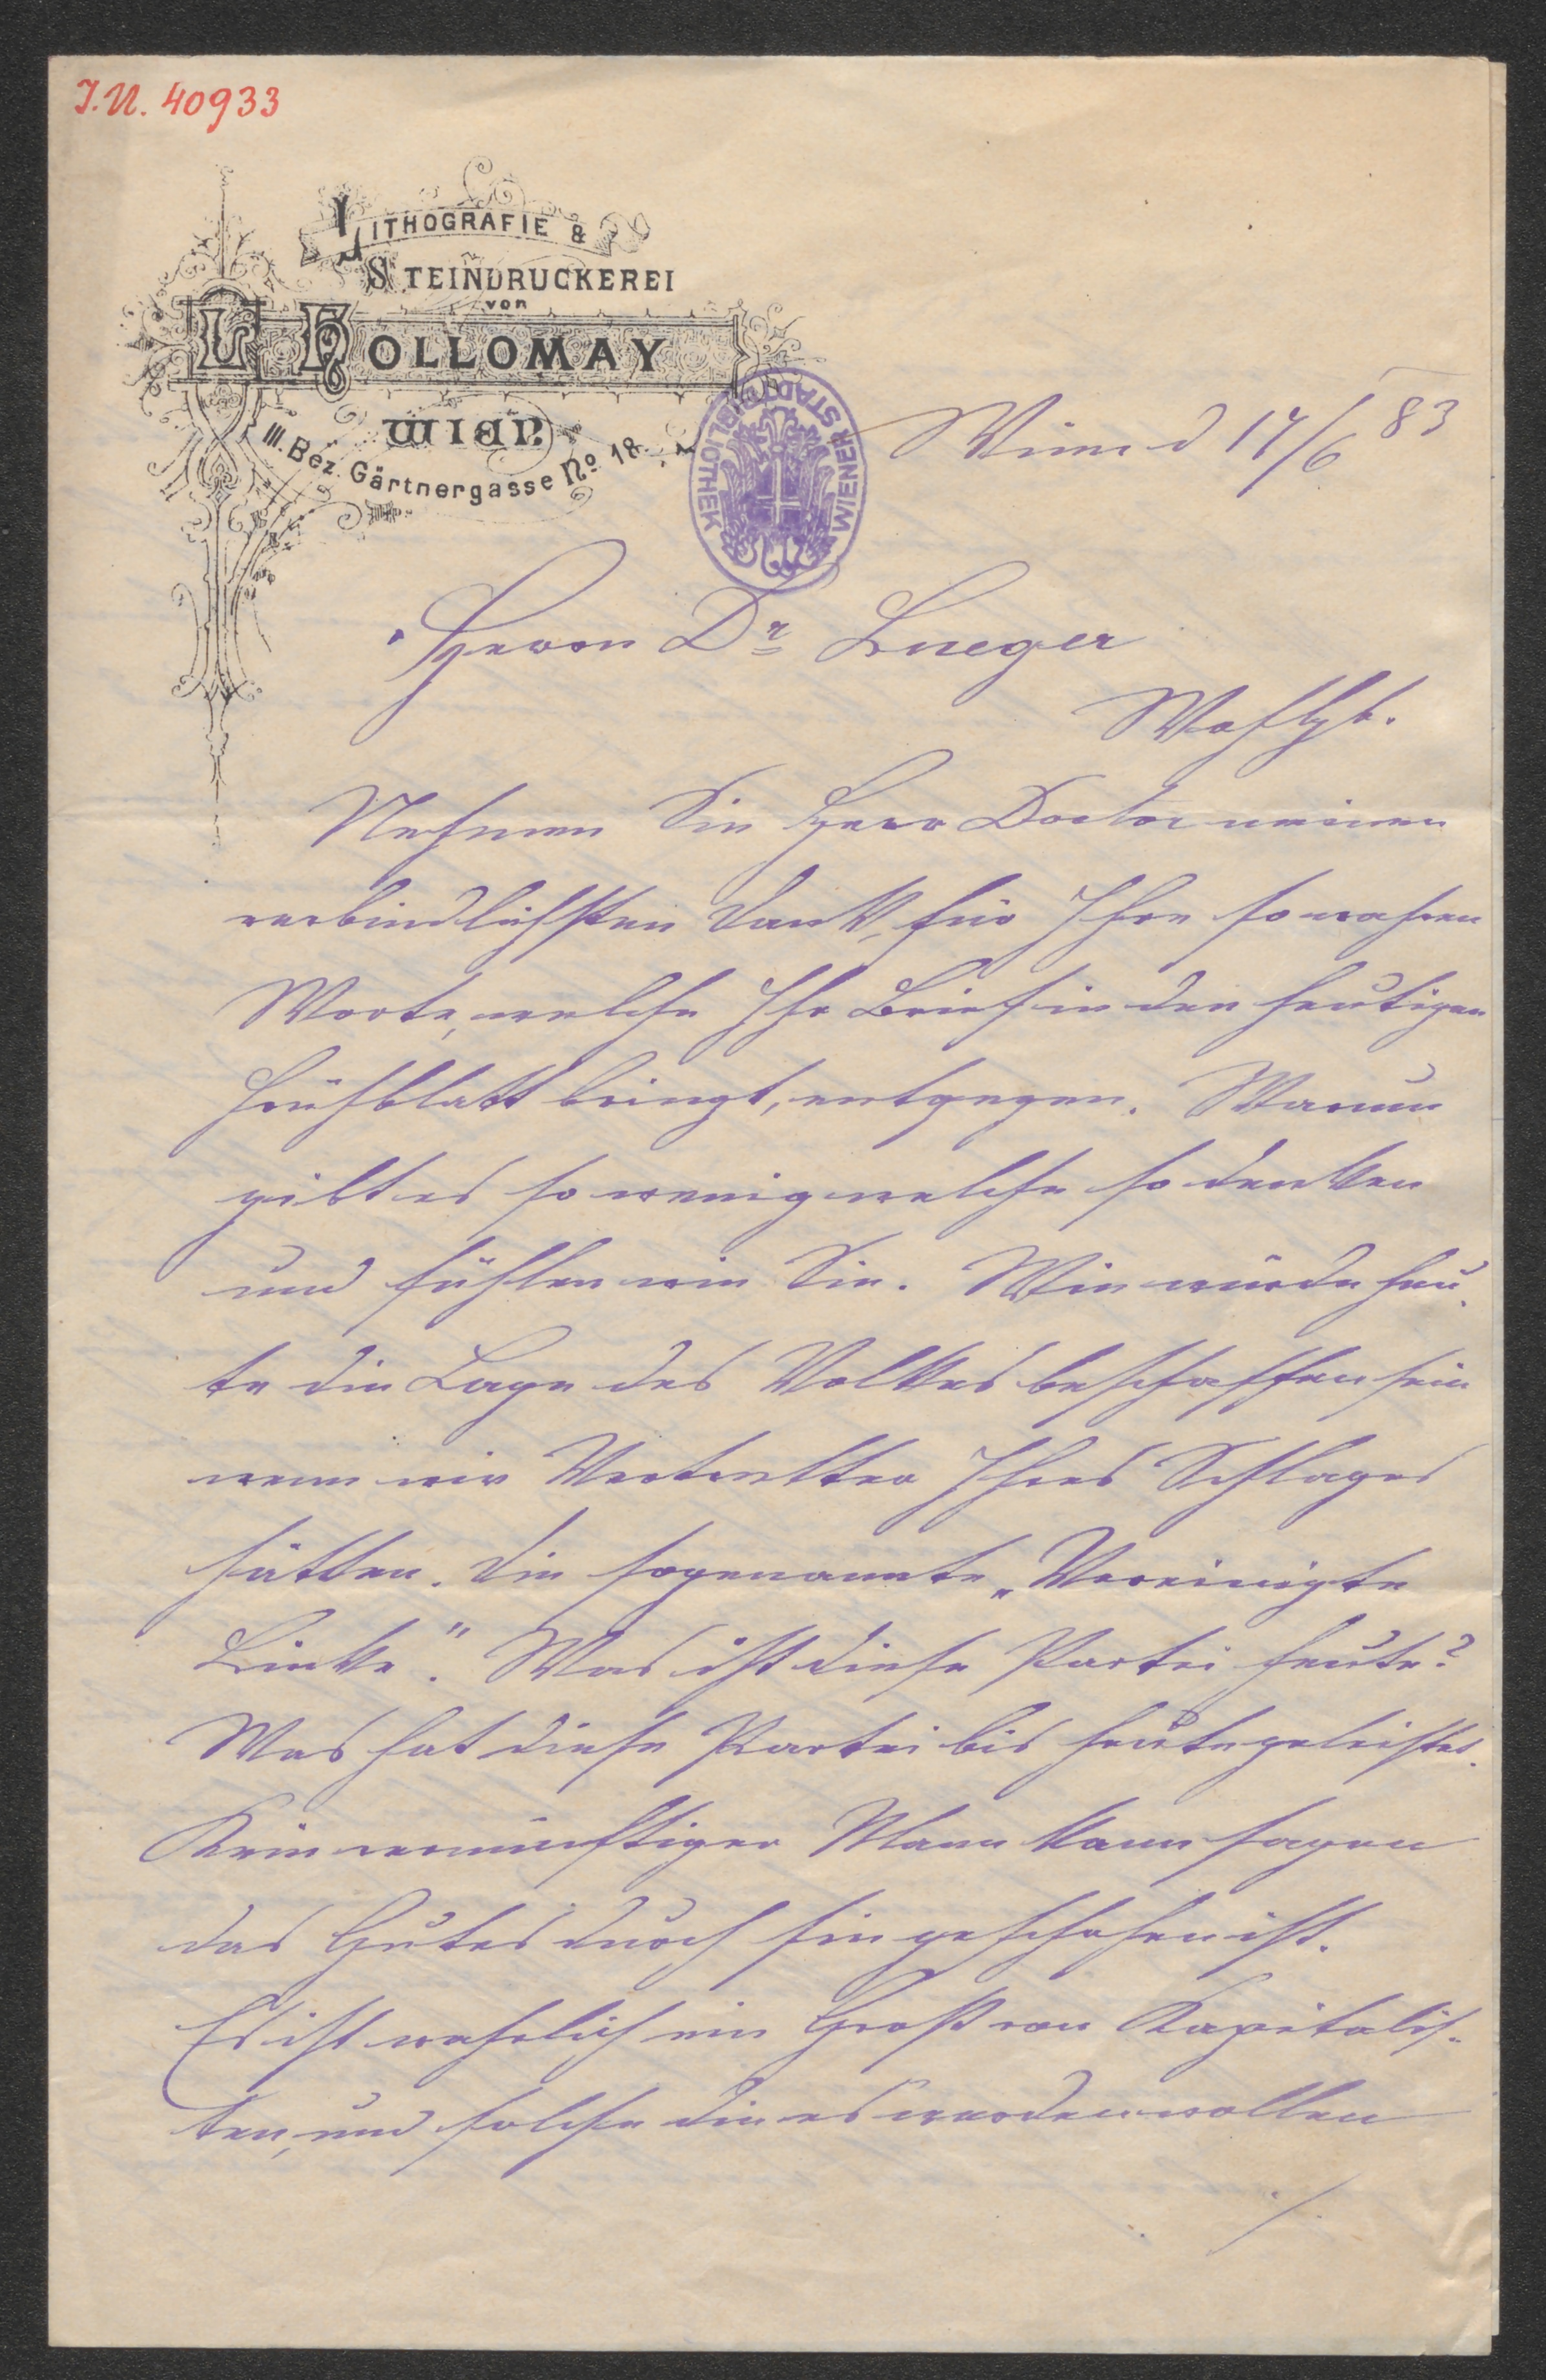 I.N. 40933
LITHOGRAFIE &
STEINDRUCKEREI
von
L. HOLLOMAY
WIEN
III. Bez. Gärtnergasse No 18.
WIENER STADTBIBLIOTHEK
Wien d 17/6 83
Herrn Dr Lueger
Wohlgb.
Nehmen Sie Herr Doctor meinen
verbindlichsten Dank, für Ihre so wahren
Worte, welche Ihr Brief in den heutigen
Frühblatt bringt, entgegen. Warum
gibt es so wenig welche so denken
und fühlen wie Sie. Wie würde heu-
te die Lage des Volkes beschaffen sein
wenn wir Vertretter Ihres Schlages
hätten. Die sogenannte „Vereinigte
Linke“. Was ist diese Partei heute?
Was hat diese Partei bis heute geleistet.
Kein vernünftiger Mann kann sagen
das Gutes durch sie geschehen ist.
Es ist wahrlich ein Groß von Kapitalis-
ten, und solche die es werden wollen
./.